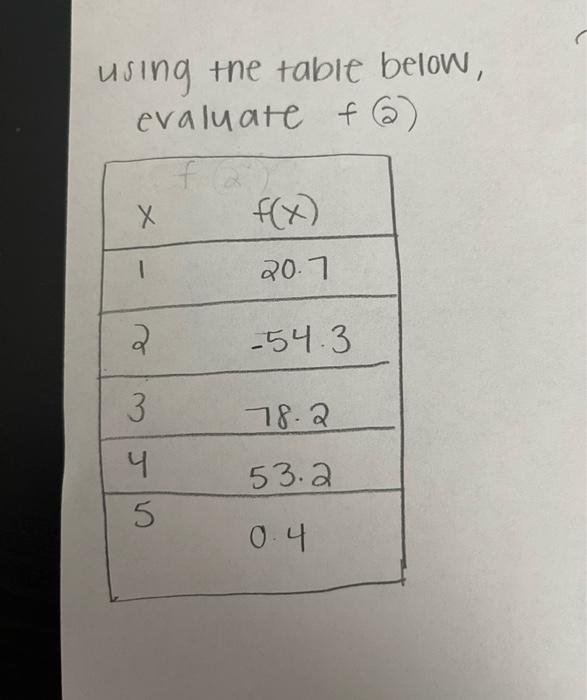 using the table below,
evaluate f(2)
f(2)
x f(x)
1 20.7
2 -54.3
3 78.2
4 53.2
5 0.4